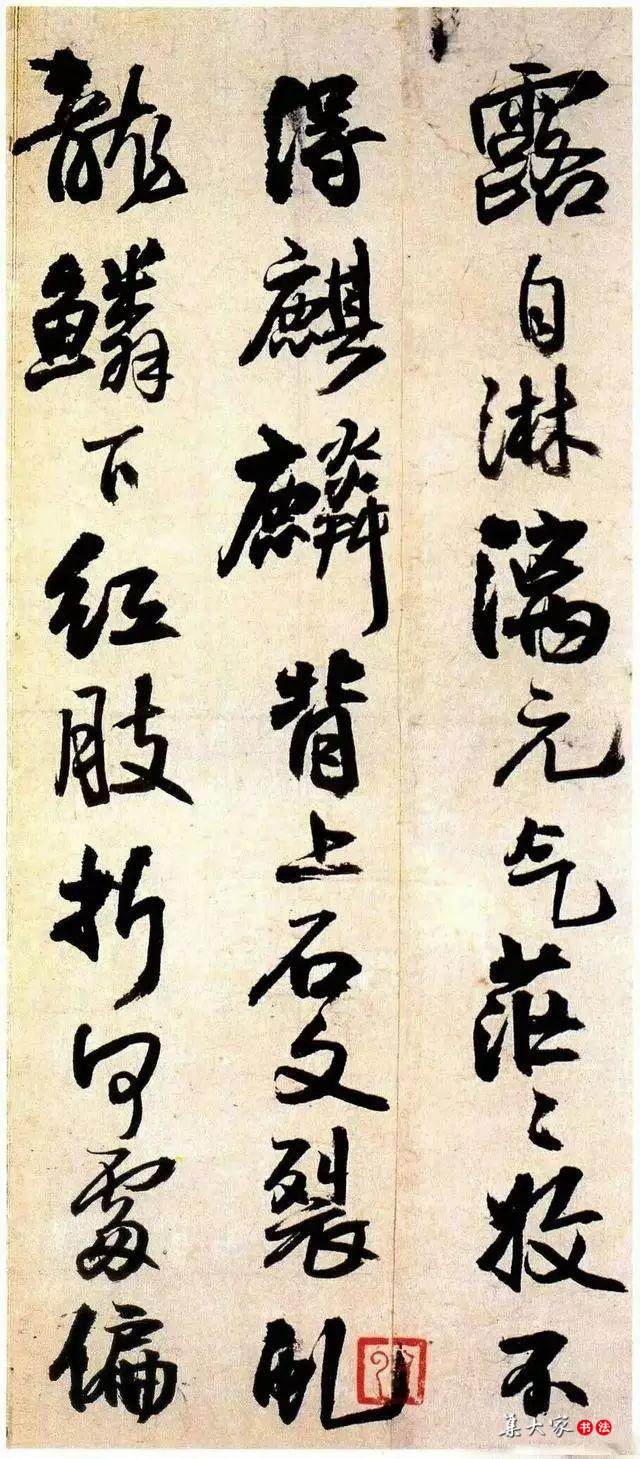 露自淋漓元气茫々收不
得麒麟背上石文裂虬
龍鱗下紅肢折何處偏
集大家 书法